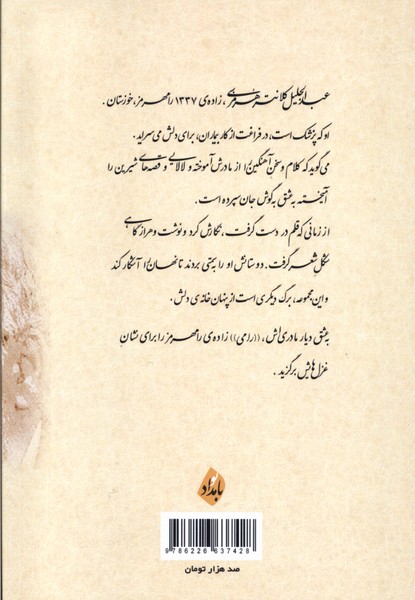 عبدالجلیل کلانتر هرمزی، زاده‌ی ۱۳۳۷ رامهرمز، خوزستان.
او که پزشک است، در فراغت از کار بیماران، برای دلش می سراید.
می گوید که کلام و سخن آهنگین را از مادرش آموخته و لالایی و قصه های شیرین را
آمیخته به عشق به گوش جان سپرده است.
از زمانی که قلم در دست گرفت، نگارش کرد و نوشت و هر از گاهی
شکل شعر گرفت. دوستانش او را به سختی بردند تا نهان را آشکار کند
و این مجموعه، برگ دیگری است از پنهان خانه ی دلش.
به عشق دیار مادری اش، ((رامی)) زاده ی رامهرمز را برای نشان
غزل هایش برگزید.
بامداد
9786226637428
صد هزار تومان